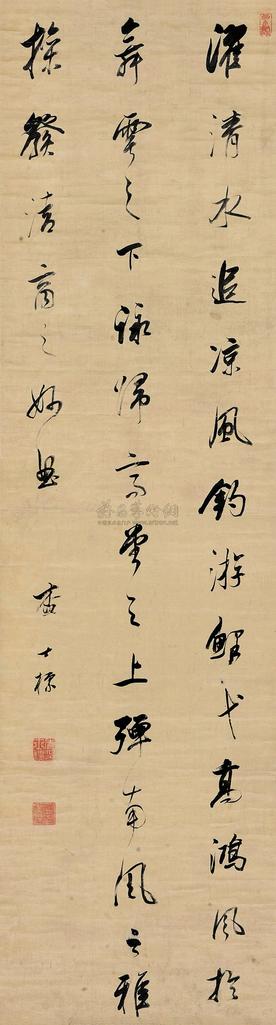 濯清水追涼風釣游鯉弋高鴻風於
舞雩之下詠歸高堂之上彈南風之雅
操發清商之妙曲
查士標